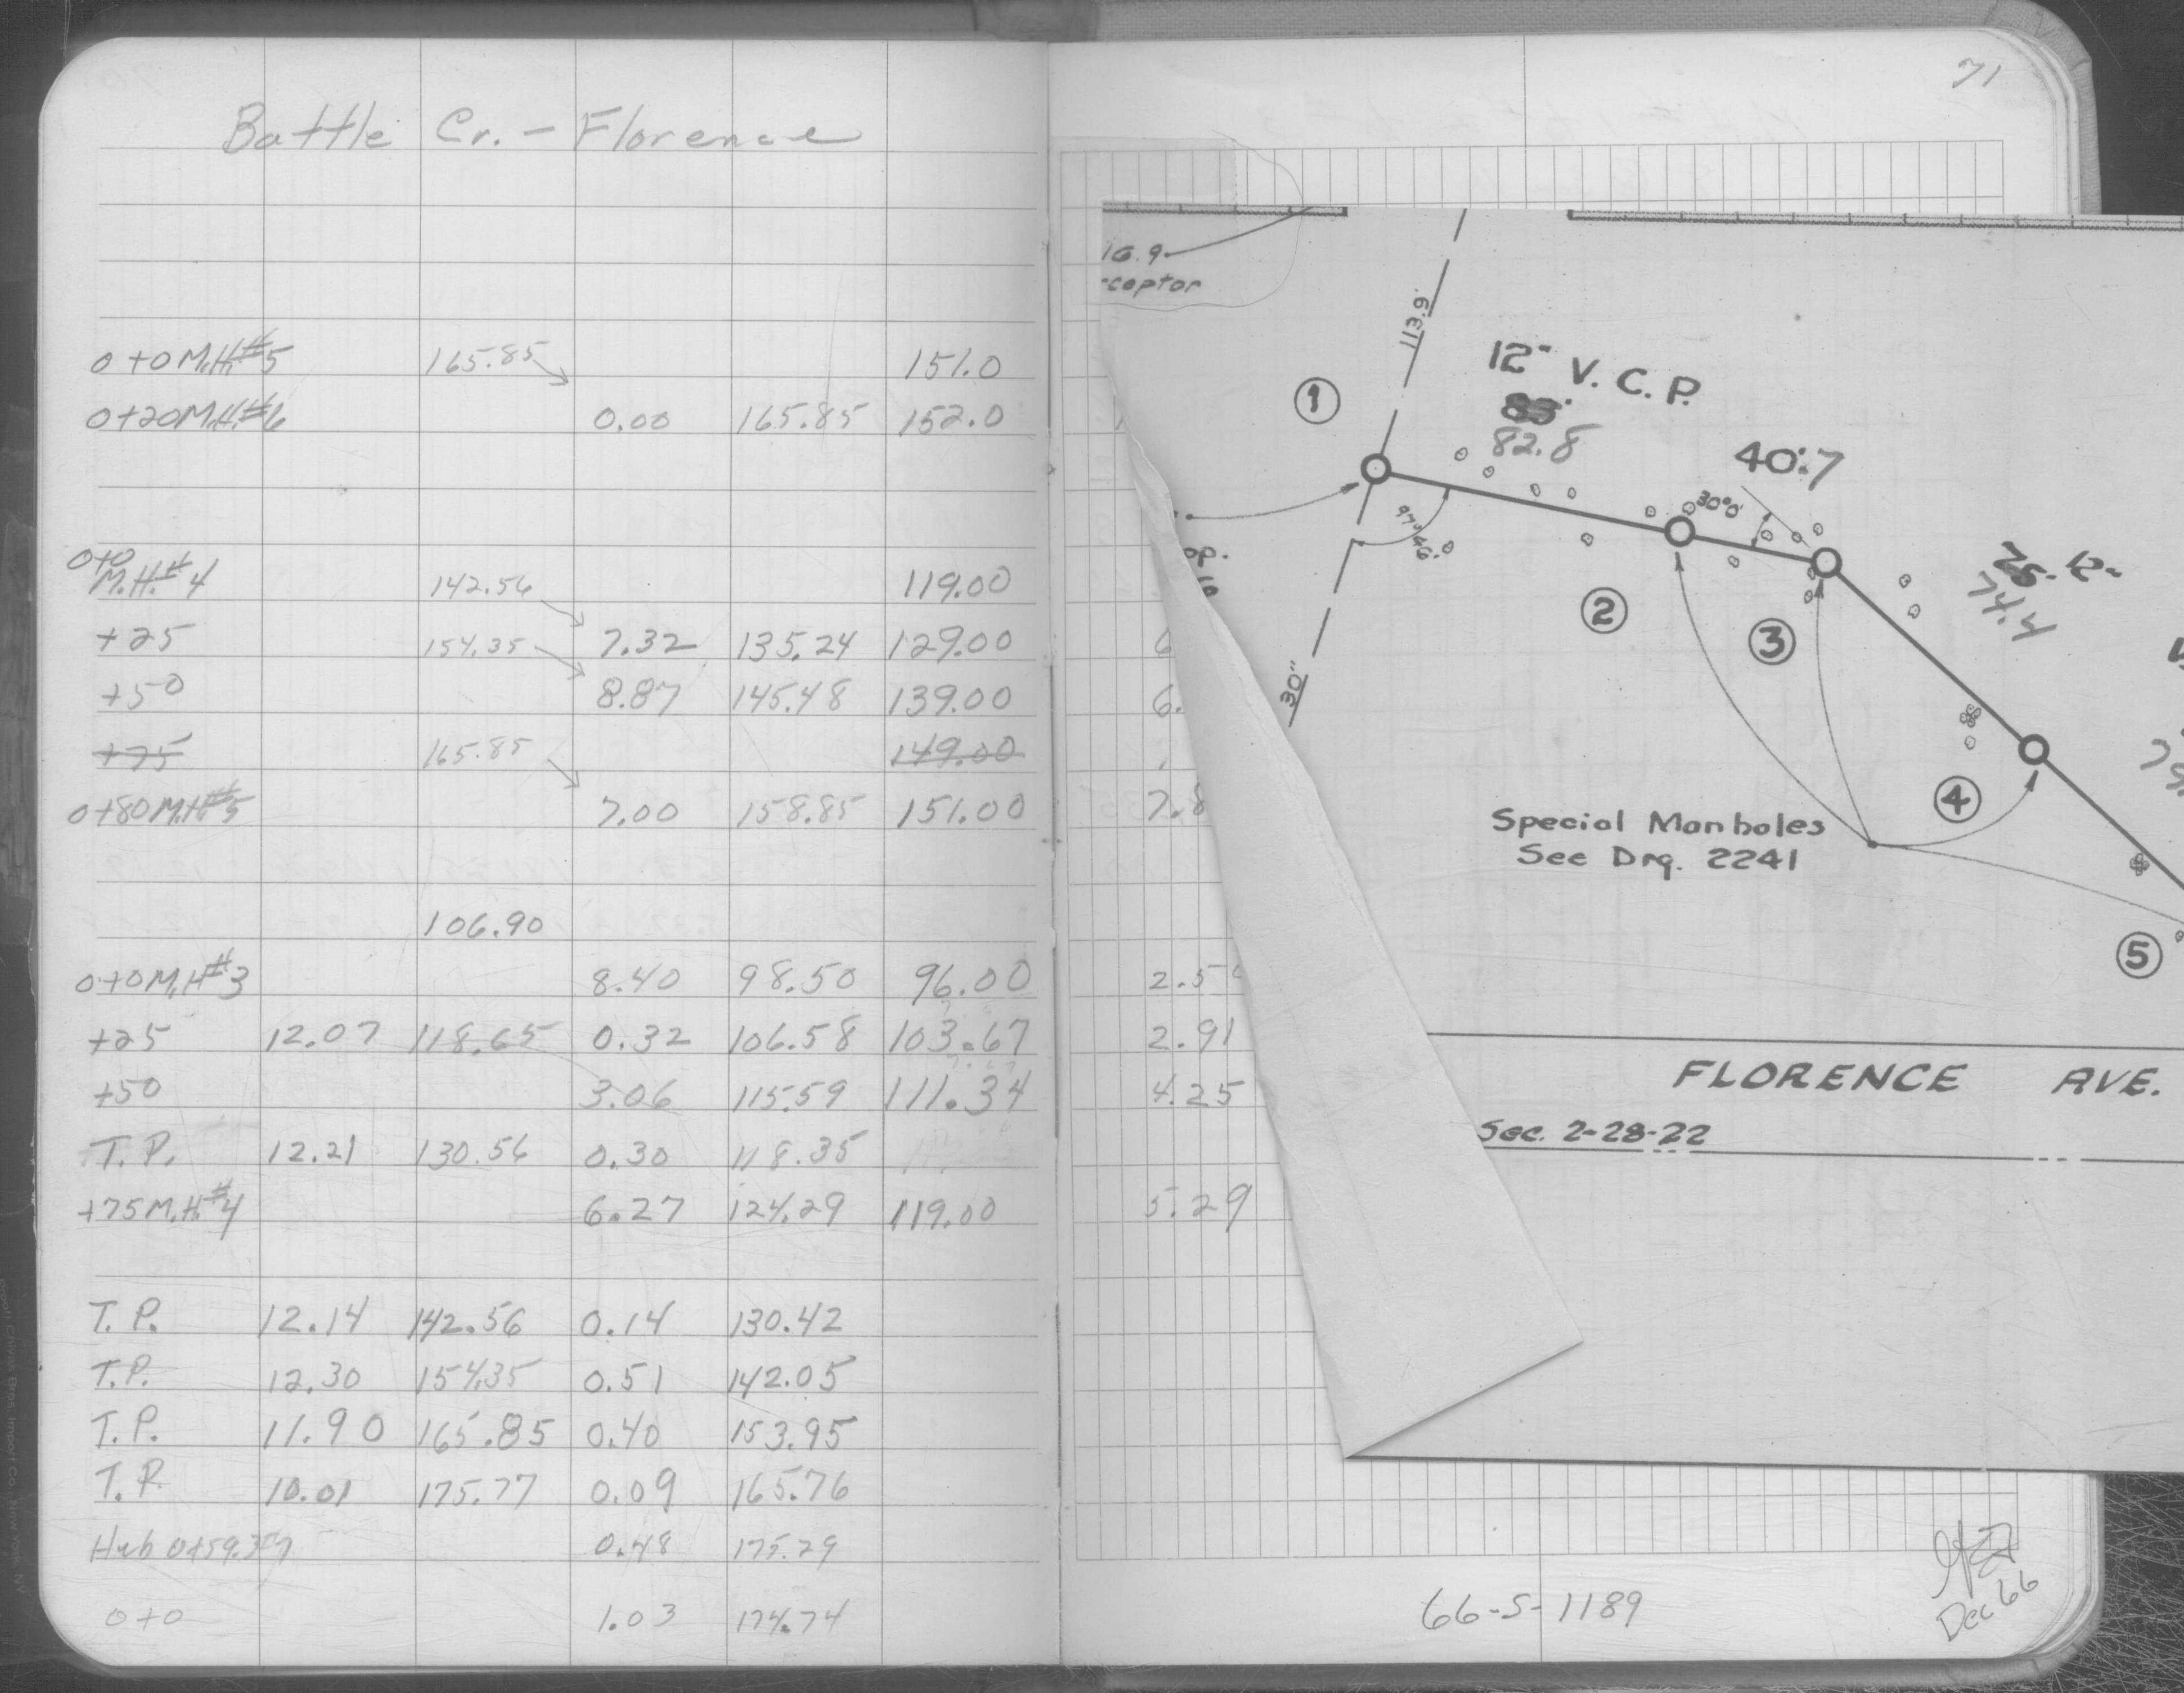 Battle Cr. - Florence
0+0 M.H.#5 165.85 151.0
0+20 M.H.#6 0.00 165.85 152.0
0+0
M.H.#4 142.56 119.00
+25 154.35 7.32 135.24 129.00
+50 8.87 145.48 139.00
+75 165.85 149.00
0+80 M.H.#5 7.00 158.85 151.00
106.90
0+0 M.H.#3 8.40 98.50 96.00
+25 12.07 118.65 0.32 106.58 103.67 2.91
+50 3.06 115.59 111.34 4.25
T.P. 12.21 130.56 0.30 118.35
+75 M.H.#4 6.27 124.29 119.00 5.29
T.P. 12.14 142.56 0.14 130.42
T.P. 12.30 154.35 0.51 142.05
T.P. 11.90 165.85 0.40 153.95
T.P. 10.01 175.77 0.09 165.76
Hub 0+59.37 0.48 175.29
0+0 1.03 174.74
71
16.9
113.9'
12" V.C.P.
82.8
1
40.7
30°0'
97°46'
75-12"
74.4
2
3
30"
4
Special Manholes
See Drg. 2241
5
FLORENCE AVE.
Sec. 2-28-22
66-S-1189
Dec 66